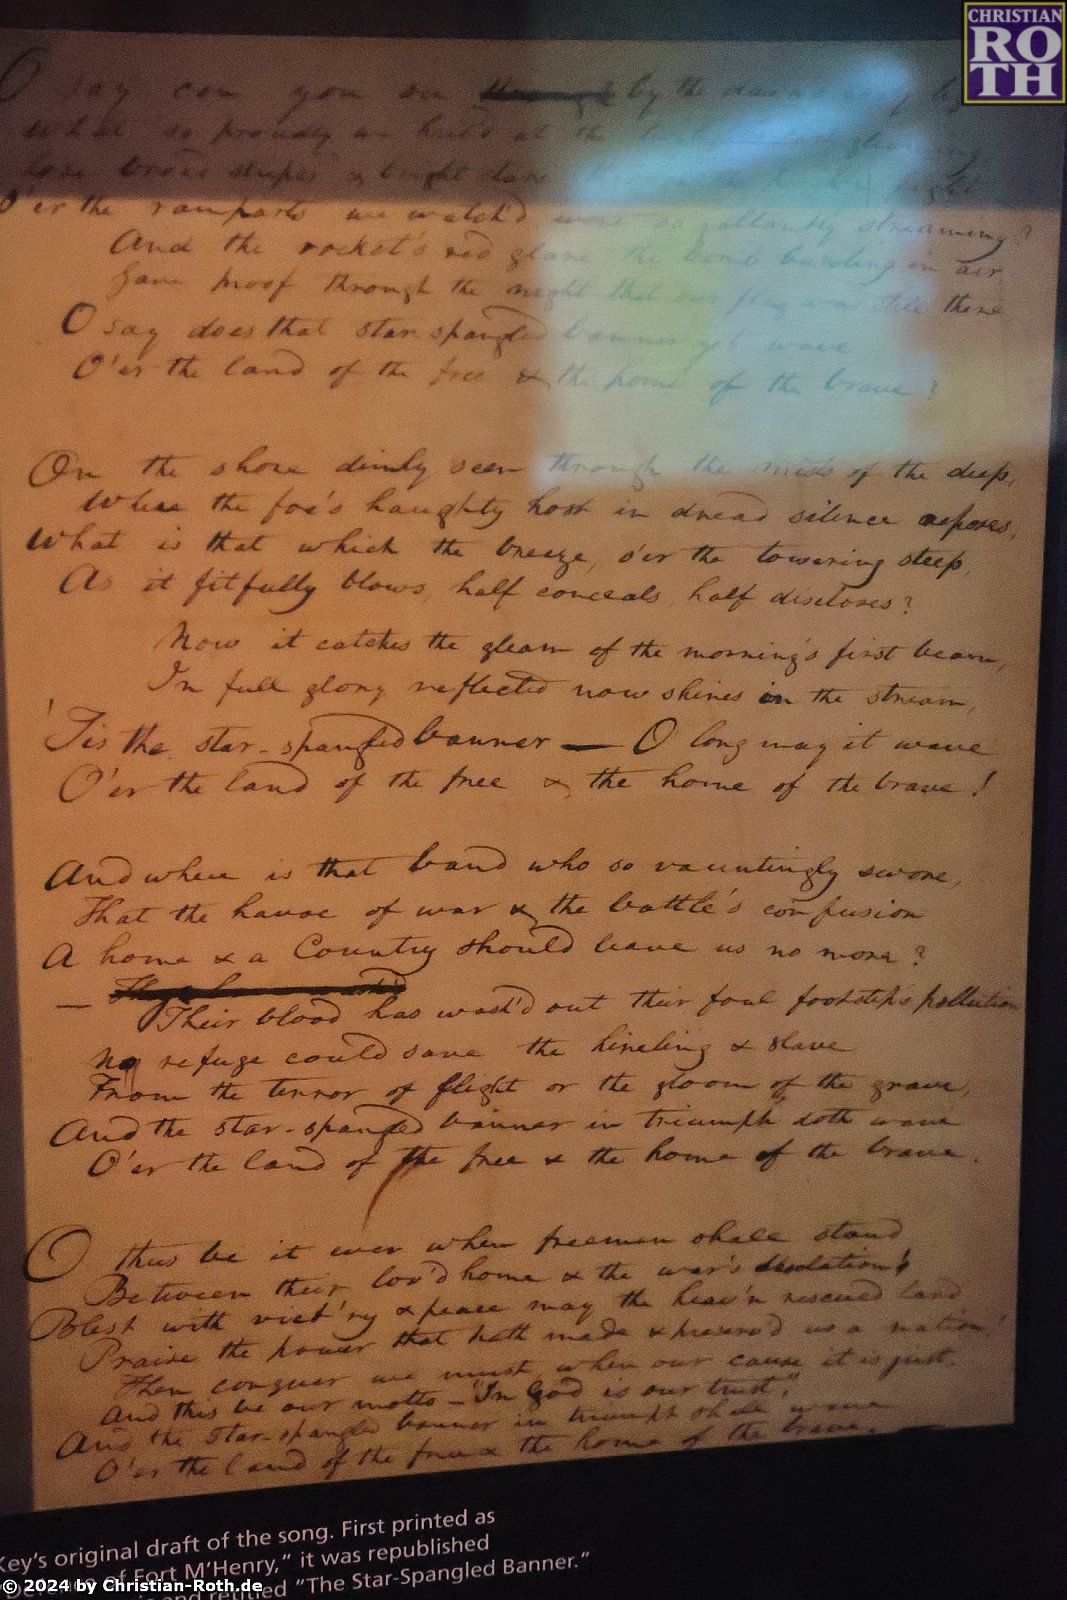 CHRISTIAN
RO
TH
O say can you see through by the dawn's
What so proudly we hail'd at the gleaming,
broad stripes & bright stars
O'er the ramparts we watch'd were so gallantly streaming?
And the rocket's red glare, the bomb bursting in air
Gave proof through the night that our flag was still there
O say does that star spangled banner yet wave
O'er the land of the free & the home of the brave?
On the shore dimly seen through the mists of the deep,
Where the foe's haughty host in dread silence reposes,
What is that which the breeze, o'er the towering steep,
As it fitfully blows, half conceals, half discloses?
Now it catches the gleam of the morning's first beam,
In full glory reflected now shines in the stream,
'Tis the star-spangled banner — O long may it wave
O'er the land of the free & the home of the brave!
And where is that band who so vauntingly swore,
That the havoc of war & the battle's confusion
A home & a Country should leave us no more?
— Their blood has wash'd out their foul footstep's pollution
No refuge could save the hireling & slave
From the terror of flight or the gloom of the grave,
And the star-spangled banner in triumph doth wave
O'er the land of the free & the home of the brave.
O thus be it ever when freemen shall stand
Between their lov'd home & the war's desolation!
Blest with vict'ry & peace may the heav'n rescued land
Praise the power that hath made & preserv'd us a nation!
Then conquer we must, when our cause it is just,
And this be our motto – "In God is our trust,"
And the star-spangled banner in triumph shall wave
O'er the land of the free & the home of the brave.
Key's original draft of the song. First printed as
"Defence of Fort M'Henry," it was republished
and retitled "The Star-Spangled Banner."
© 2024 by Christian-Roth.de